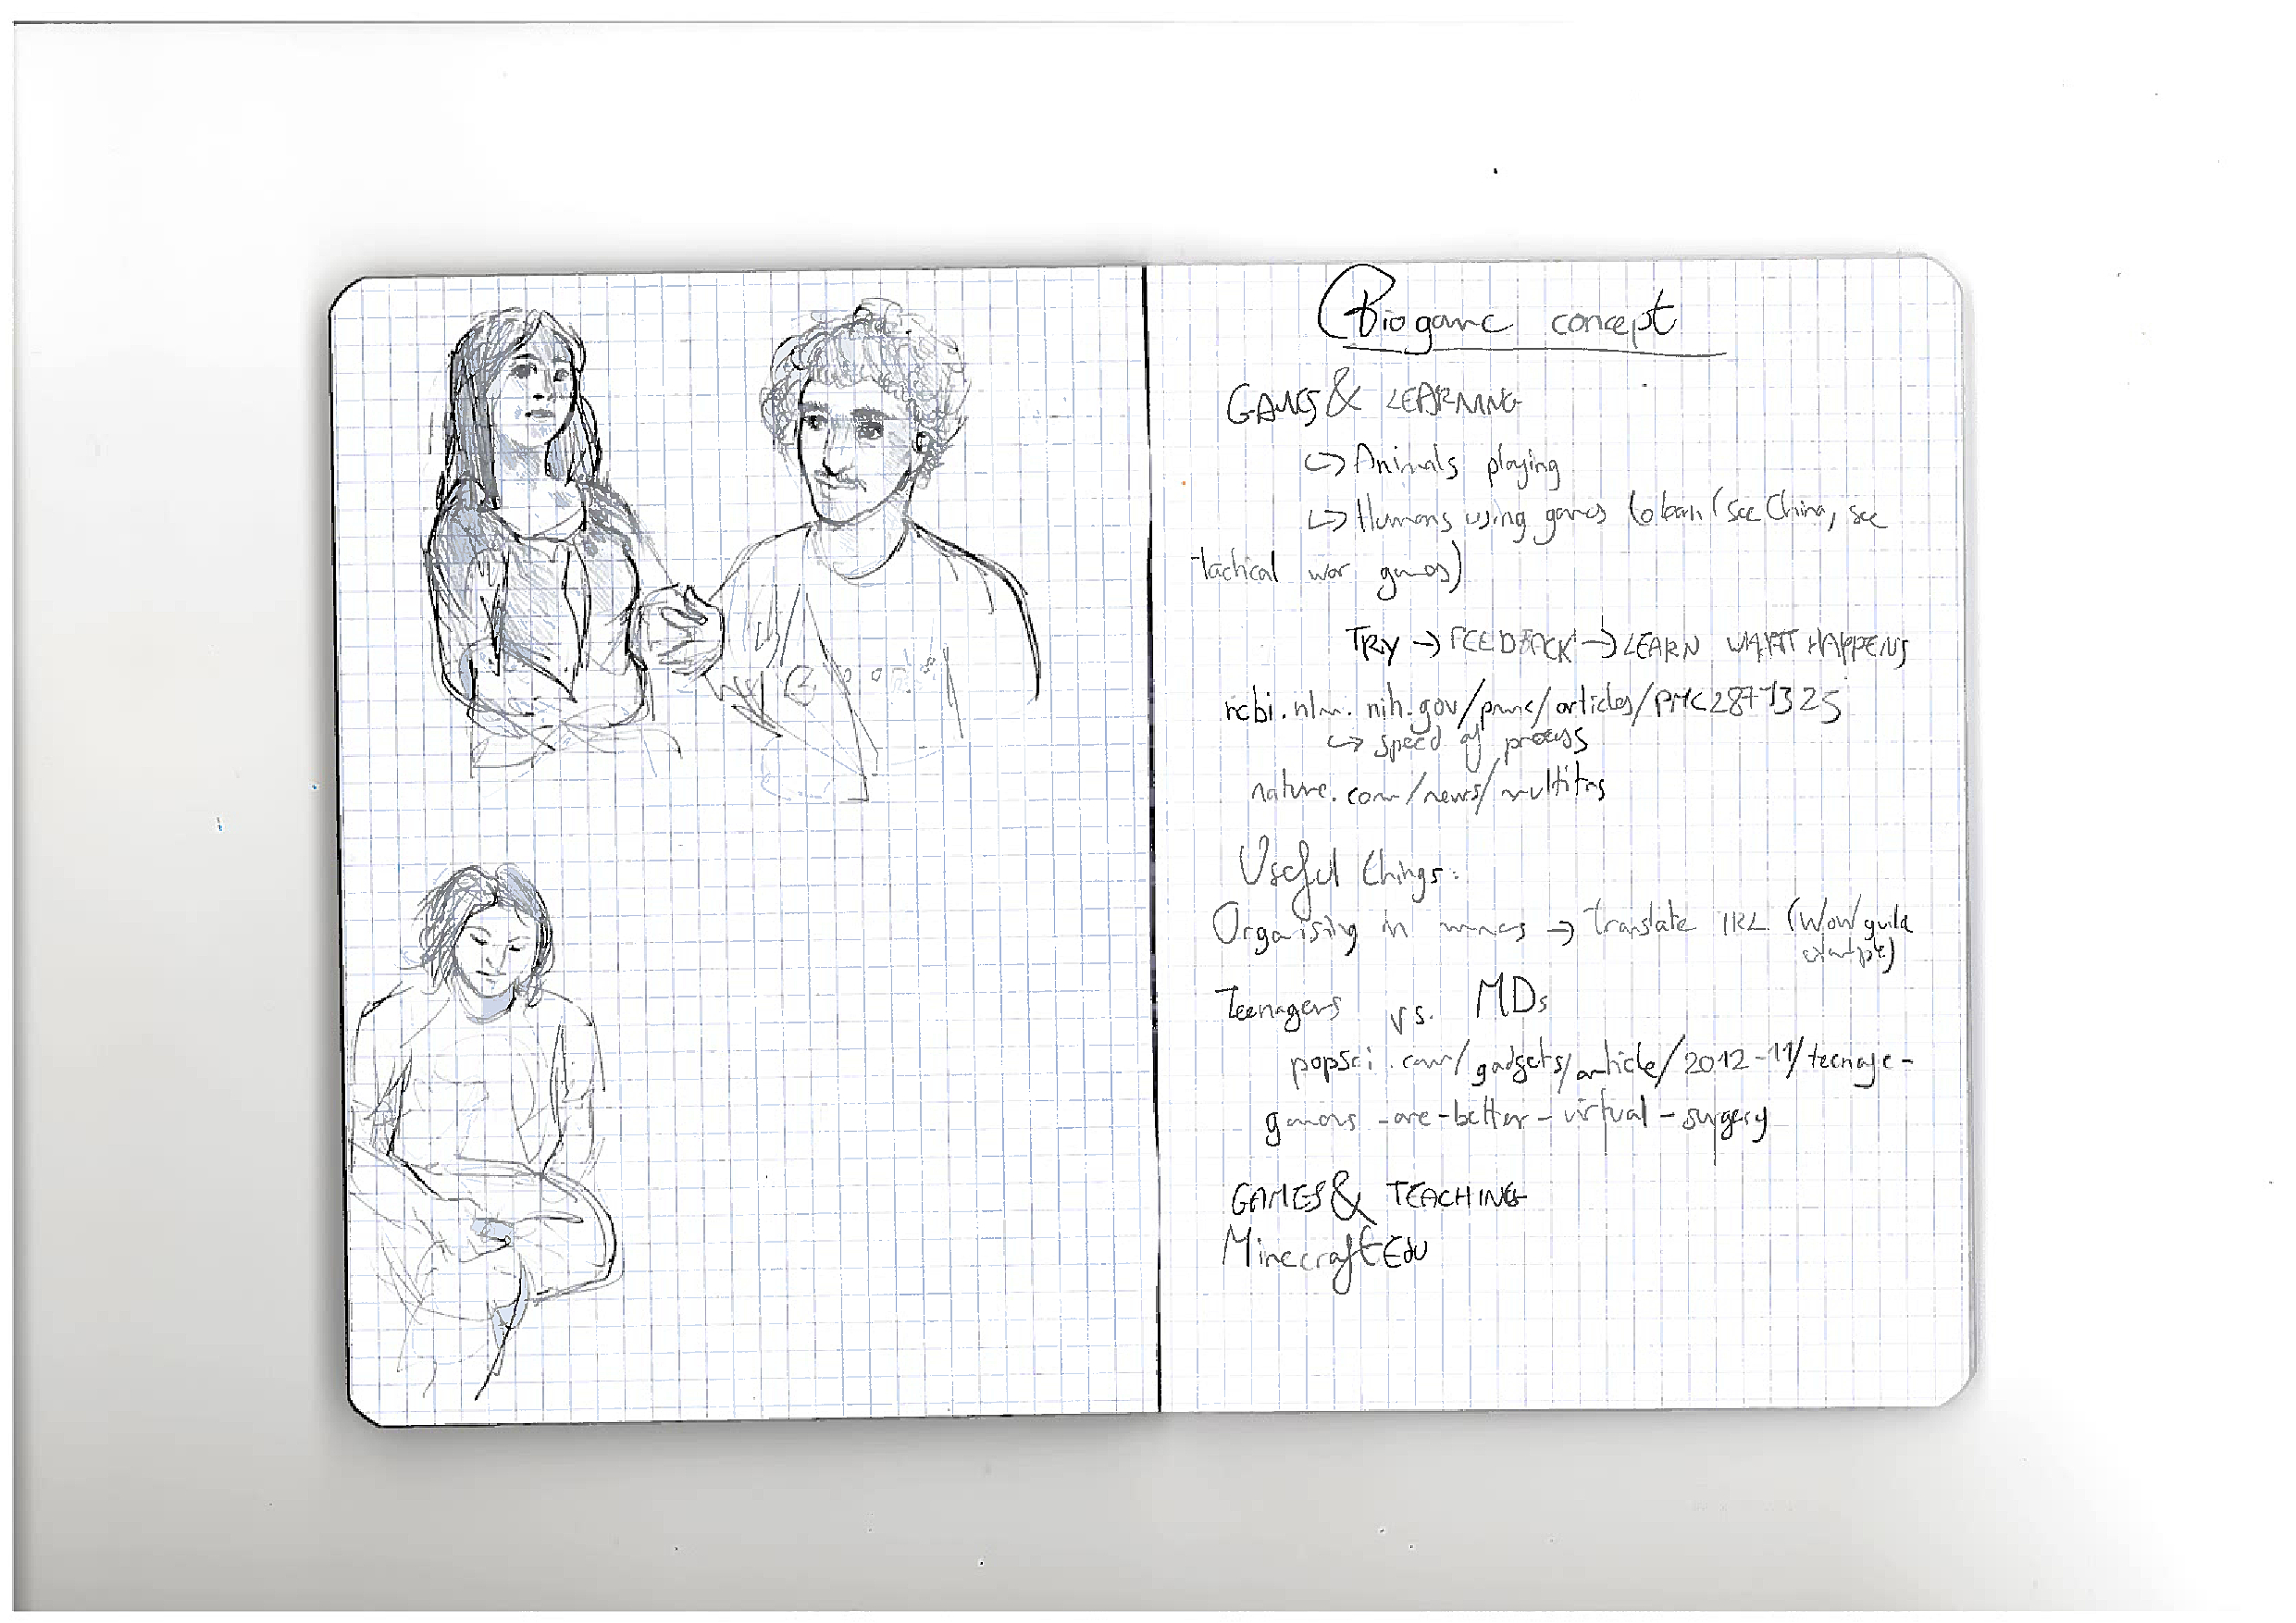 Biogame concept
GAMES & LEARNING
↳ Animals playing
↳ Humans using games to learn (see China, see
tactical war games)
TRY → FEEDBACK → LEARN WHAT HAPPENS
ncbi.nlm.nih.gov/pmc/articles/PMC2871325
↳ speed of process
nature.com/news/multitas
Useful things:
Organising in → translate IRL (WoW guild
example)
Teenagers vs. MDs
popsci.com/gadgets/article/2012-11/teenage-
gamers-are-better-virtual-surgery
GAMES & TEACHING
MinecraftEdu